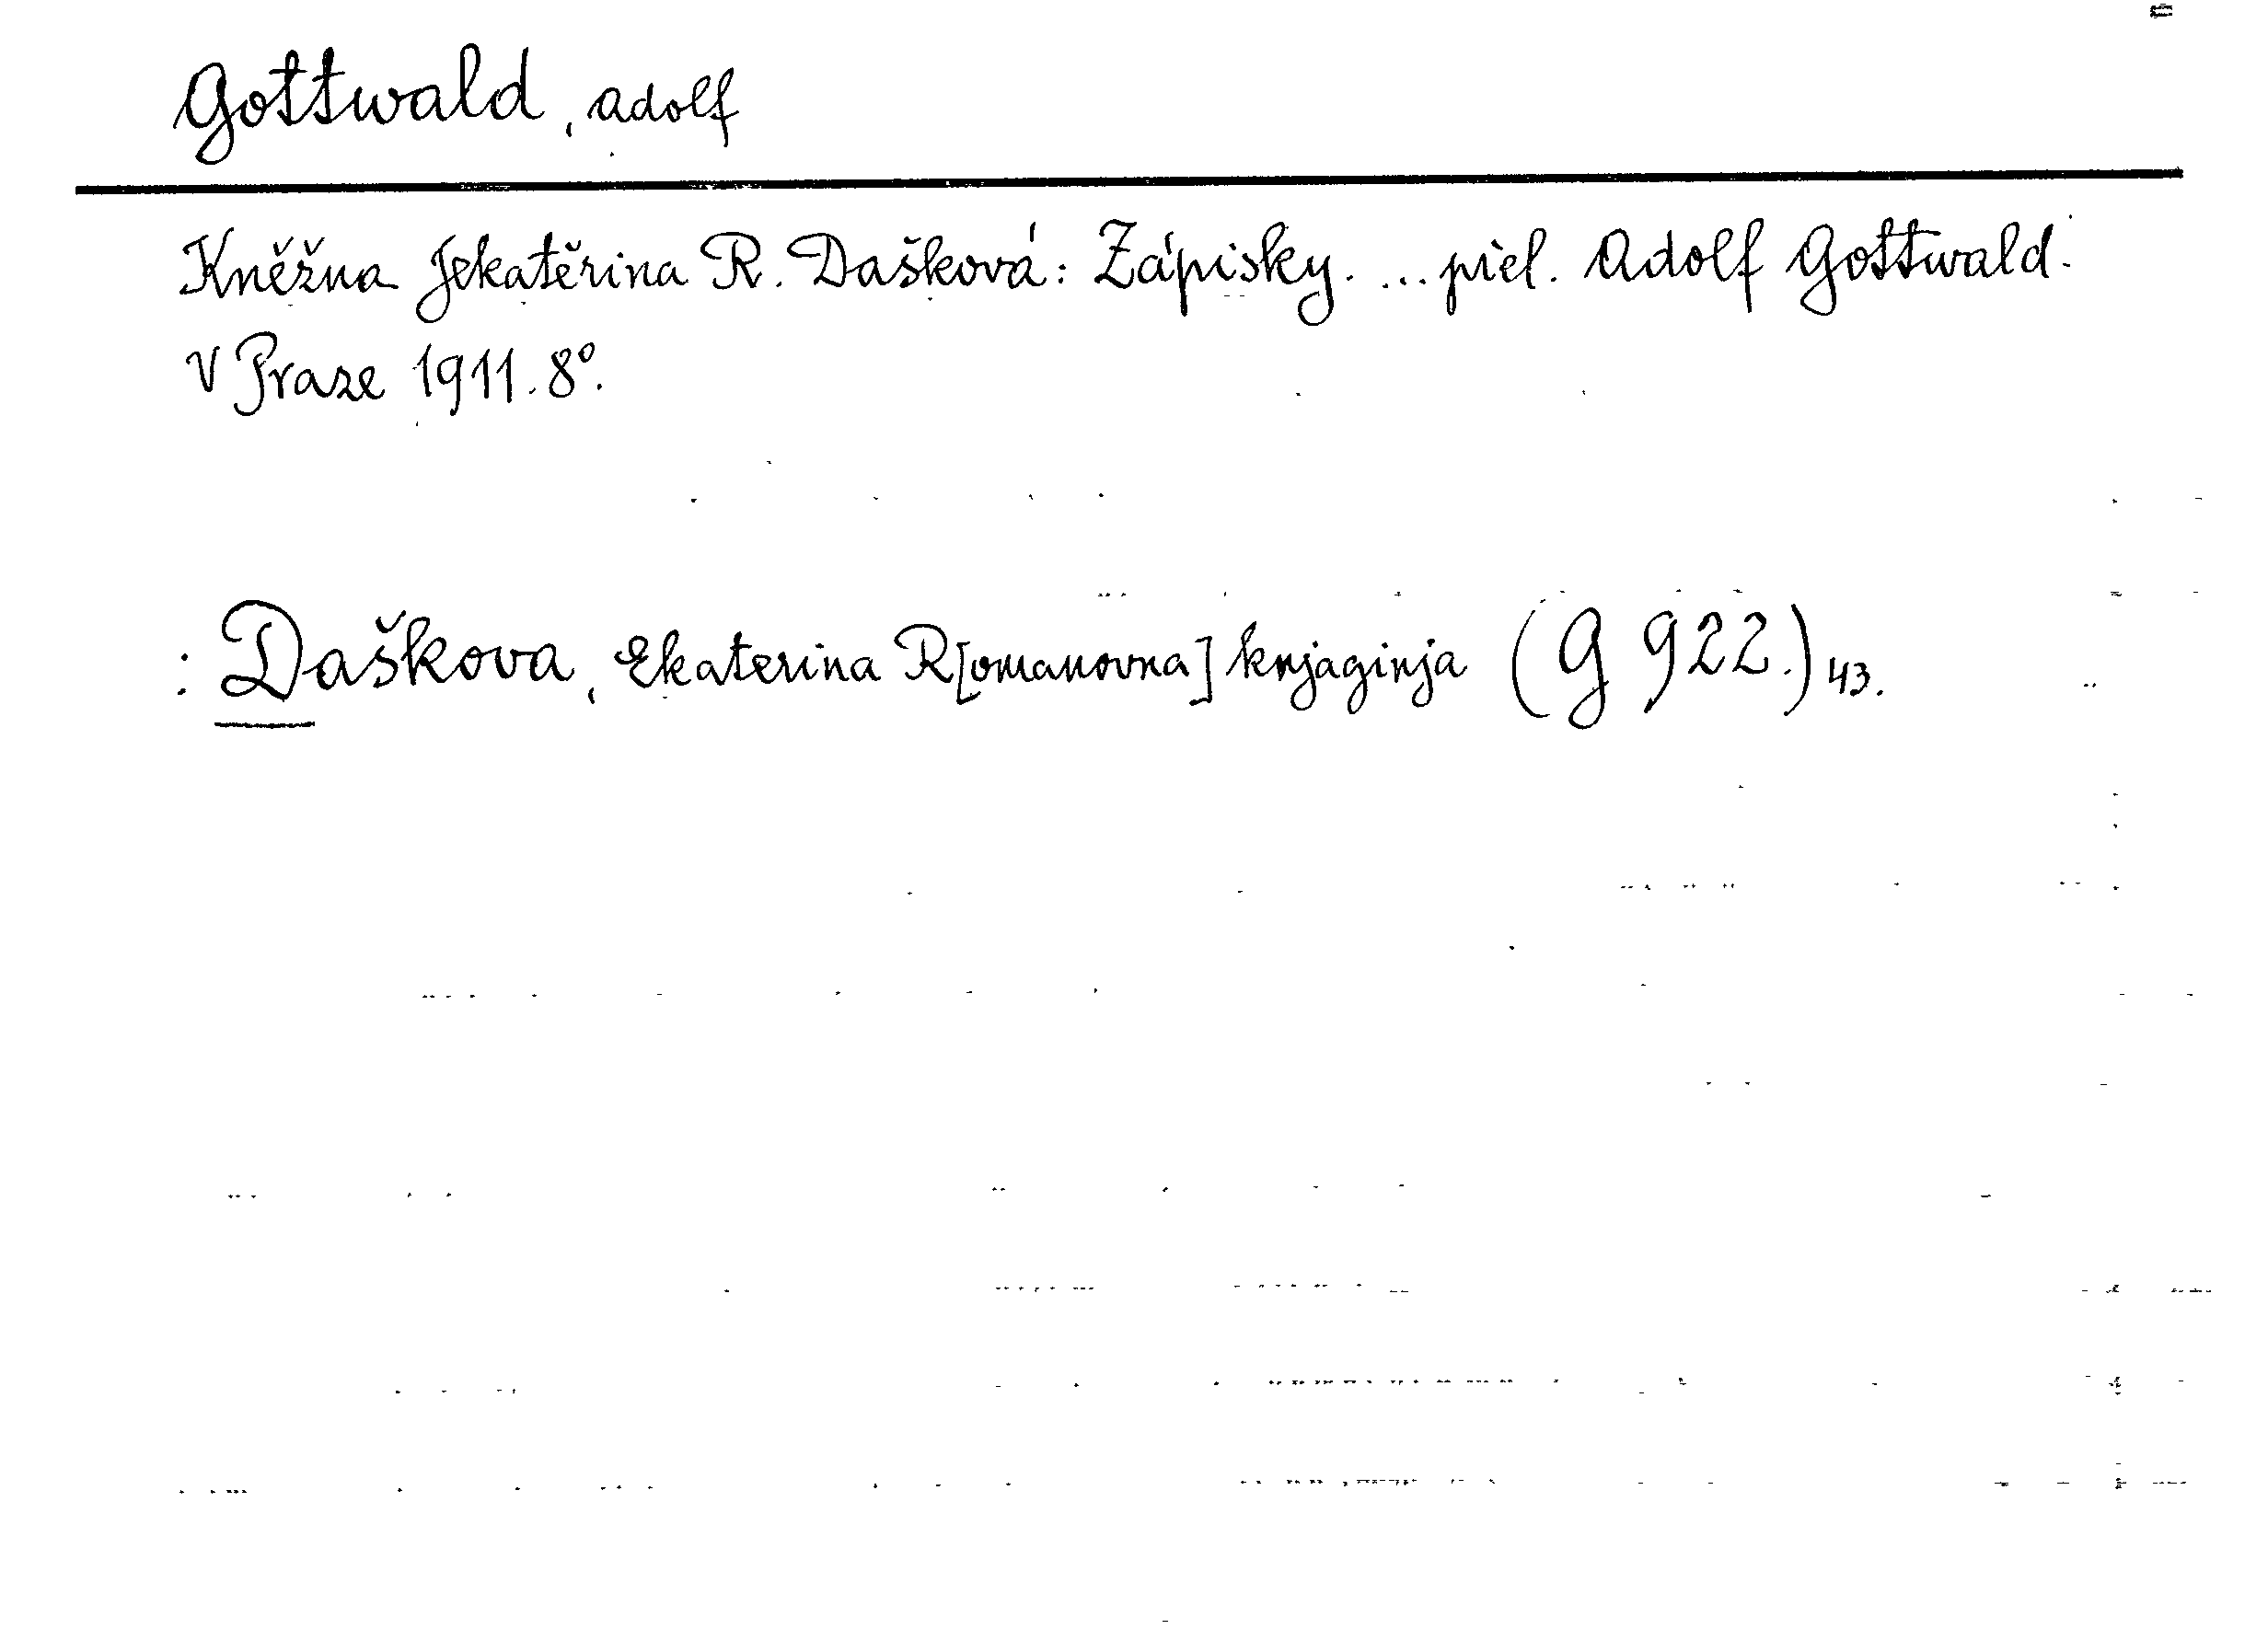 Gottwald, Adolf
Kněžna Jekatěrina R. Dašková: Zápisky. ... přel. Adolf Gottwald.
V Praze 1911. 8°.
: Daškova, Ekaterina R[omanovna] knjaginja (G 922.) 43.